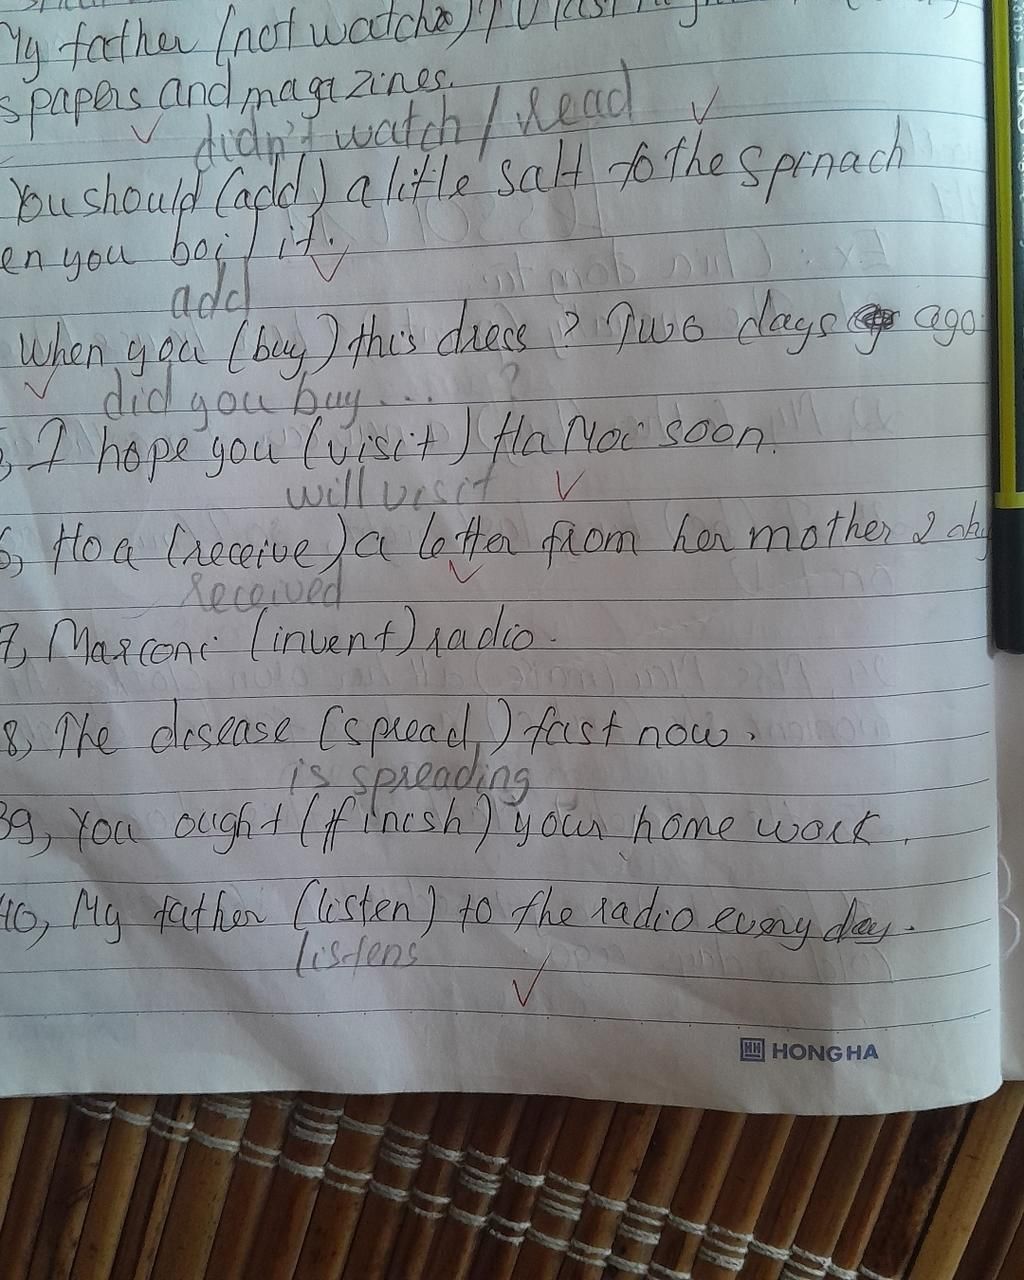 My father (not watch) TV last
spapers and magazines.
didn't watch / Read
You should (add) a little salt to the spinach
en you boil it.
add
When you (buy) this dress? Two days ago
did you buy... ?
5, I hope you (visit) Ha Noi soon.
will visit
6, Hoa (receive) a letter from her mother 2
Received
7, Marconi (invent) radio.
8, The disease (spread) fast now.
is spreading
39, You ought (finish) your home work.
40, My father (listen) to the radio every day.
listens
HONG HA